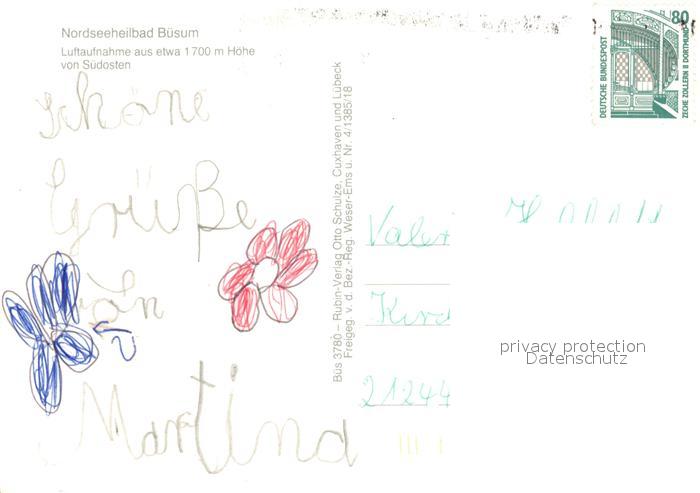 Nordseeheilbad Büsum
Luftaufnahme aus etwa 1700 m Höhe
von Südosten
Schöne
Grüße
An
Martina
Büs 3780 – Rubin-Verlag Otto Schulze, Cuxhaven und Lübeck
Freigeg. v. d. Bez.-Reg. Weser-Ems u. Nr. 4/1385/18
80
DEUTSCHE BUNDESPOST
ZECHE ZOLLERN II DORTMUND
Valer
Kird
21244
privacy protection
Datenschutz